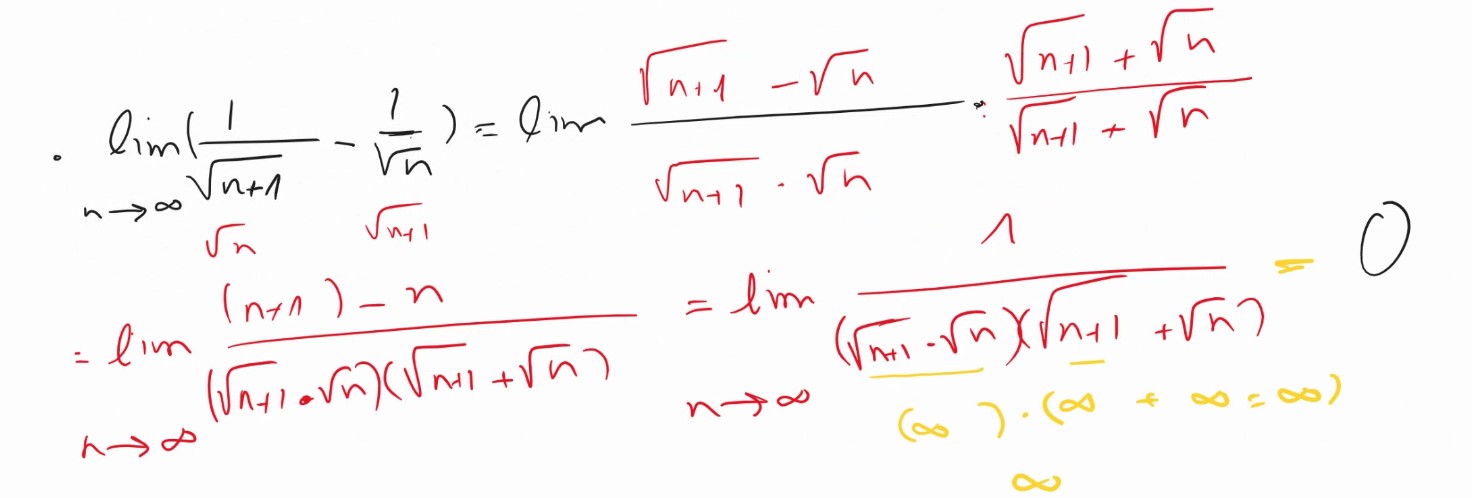 . lim(1/√(n+1) - 1/√n) = lim (√(n+1) - √n)/(√(n+1) · √n) · (√(n+1) + √n)/(√(n+1) + √n)
n→∞
√n √(n+1)
= lim ((n+1) - n)/((√(n+1) · √n)(√(n+1) + √n)) = lim 1/((√(n+1) · √n)(√(n+1) + √n)) = 0
n→∞ n→∞
(∞) · (∞ + ∞ = ∞)
∞